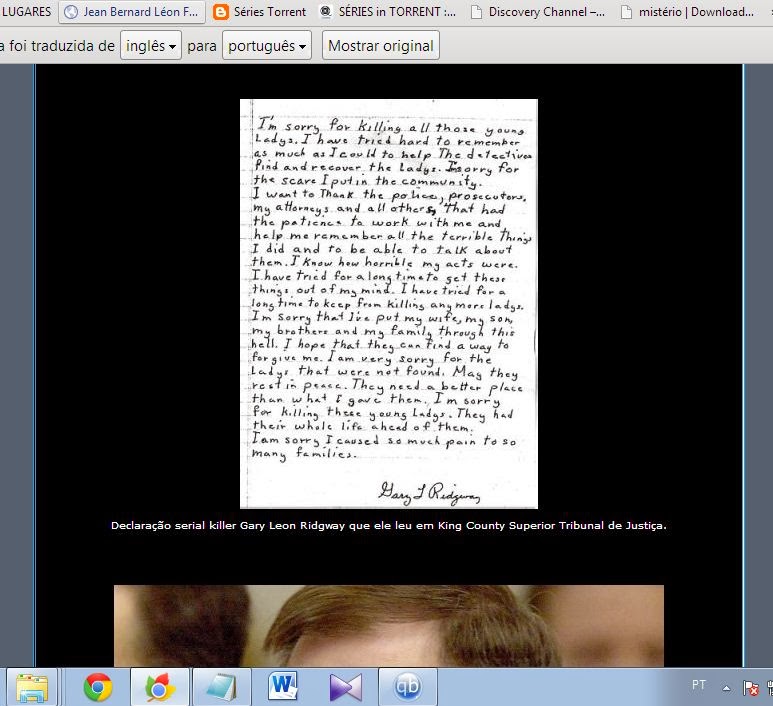 LUGARES Jean Bernard Léon F... Séries Torrent SÉRIES in TORRENT :... Discovery Channel –... mistério | Download...
a foi traduzida de inglês para português Mostrar original
I'm sorry for killing all those young
Ladys. I have tried hard to remember
as much as I could to help The detectives
find and recover the Ladys. I'm sorry for
the scare I put in the community.
I want to Thank the police, prosecutors,
my attorneys and all others, That had
the patience to work with me and
help me remember all the terrible Things
I did and to be able to talk about
them. I Know how horrible my acts were.
I have tried for a long time to get these
things out of my mind. I have tried for a
long time to keep from Killing any more ladys.
I'm Sorry that I've put my wife, my son,
my brothers and my family through this
hell. I hope that they can find a way to
forgive me. I am very sorry for the
Ladys that were not found. May they
rest in peace. They need a better place
than what I gave them. I'm sorry
for killing these young Ladys. They had
their whole life ahead of them.
I am sorry I caused so much pain to so
many families.
Gary L Ridgway
Declaração serial killer Gary Leon Ridgway que ele leu em King County Superior Tribunal de Justiça.
W qb PT